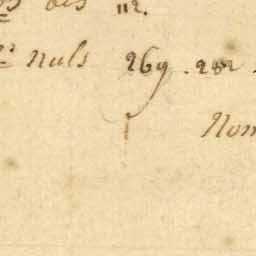 des 112.
nuls 269. 282.
Nom